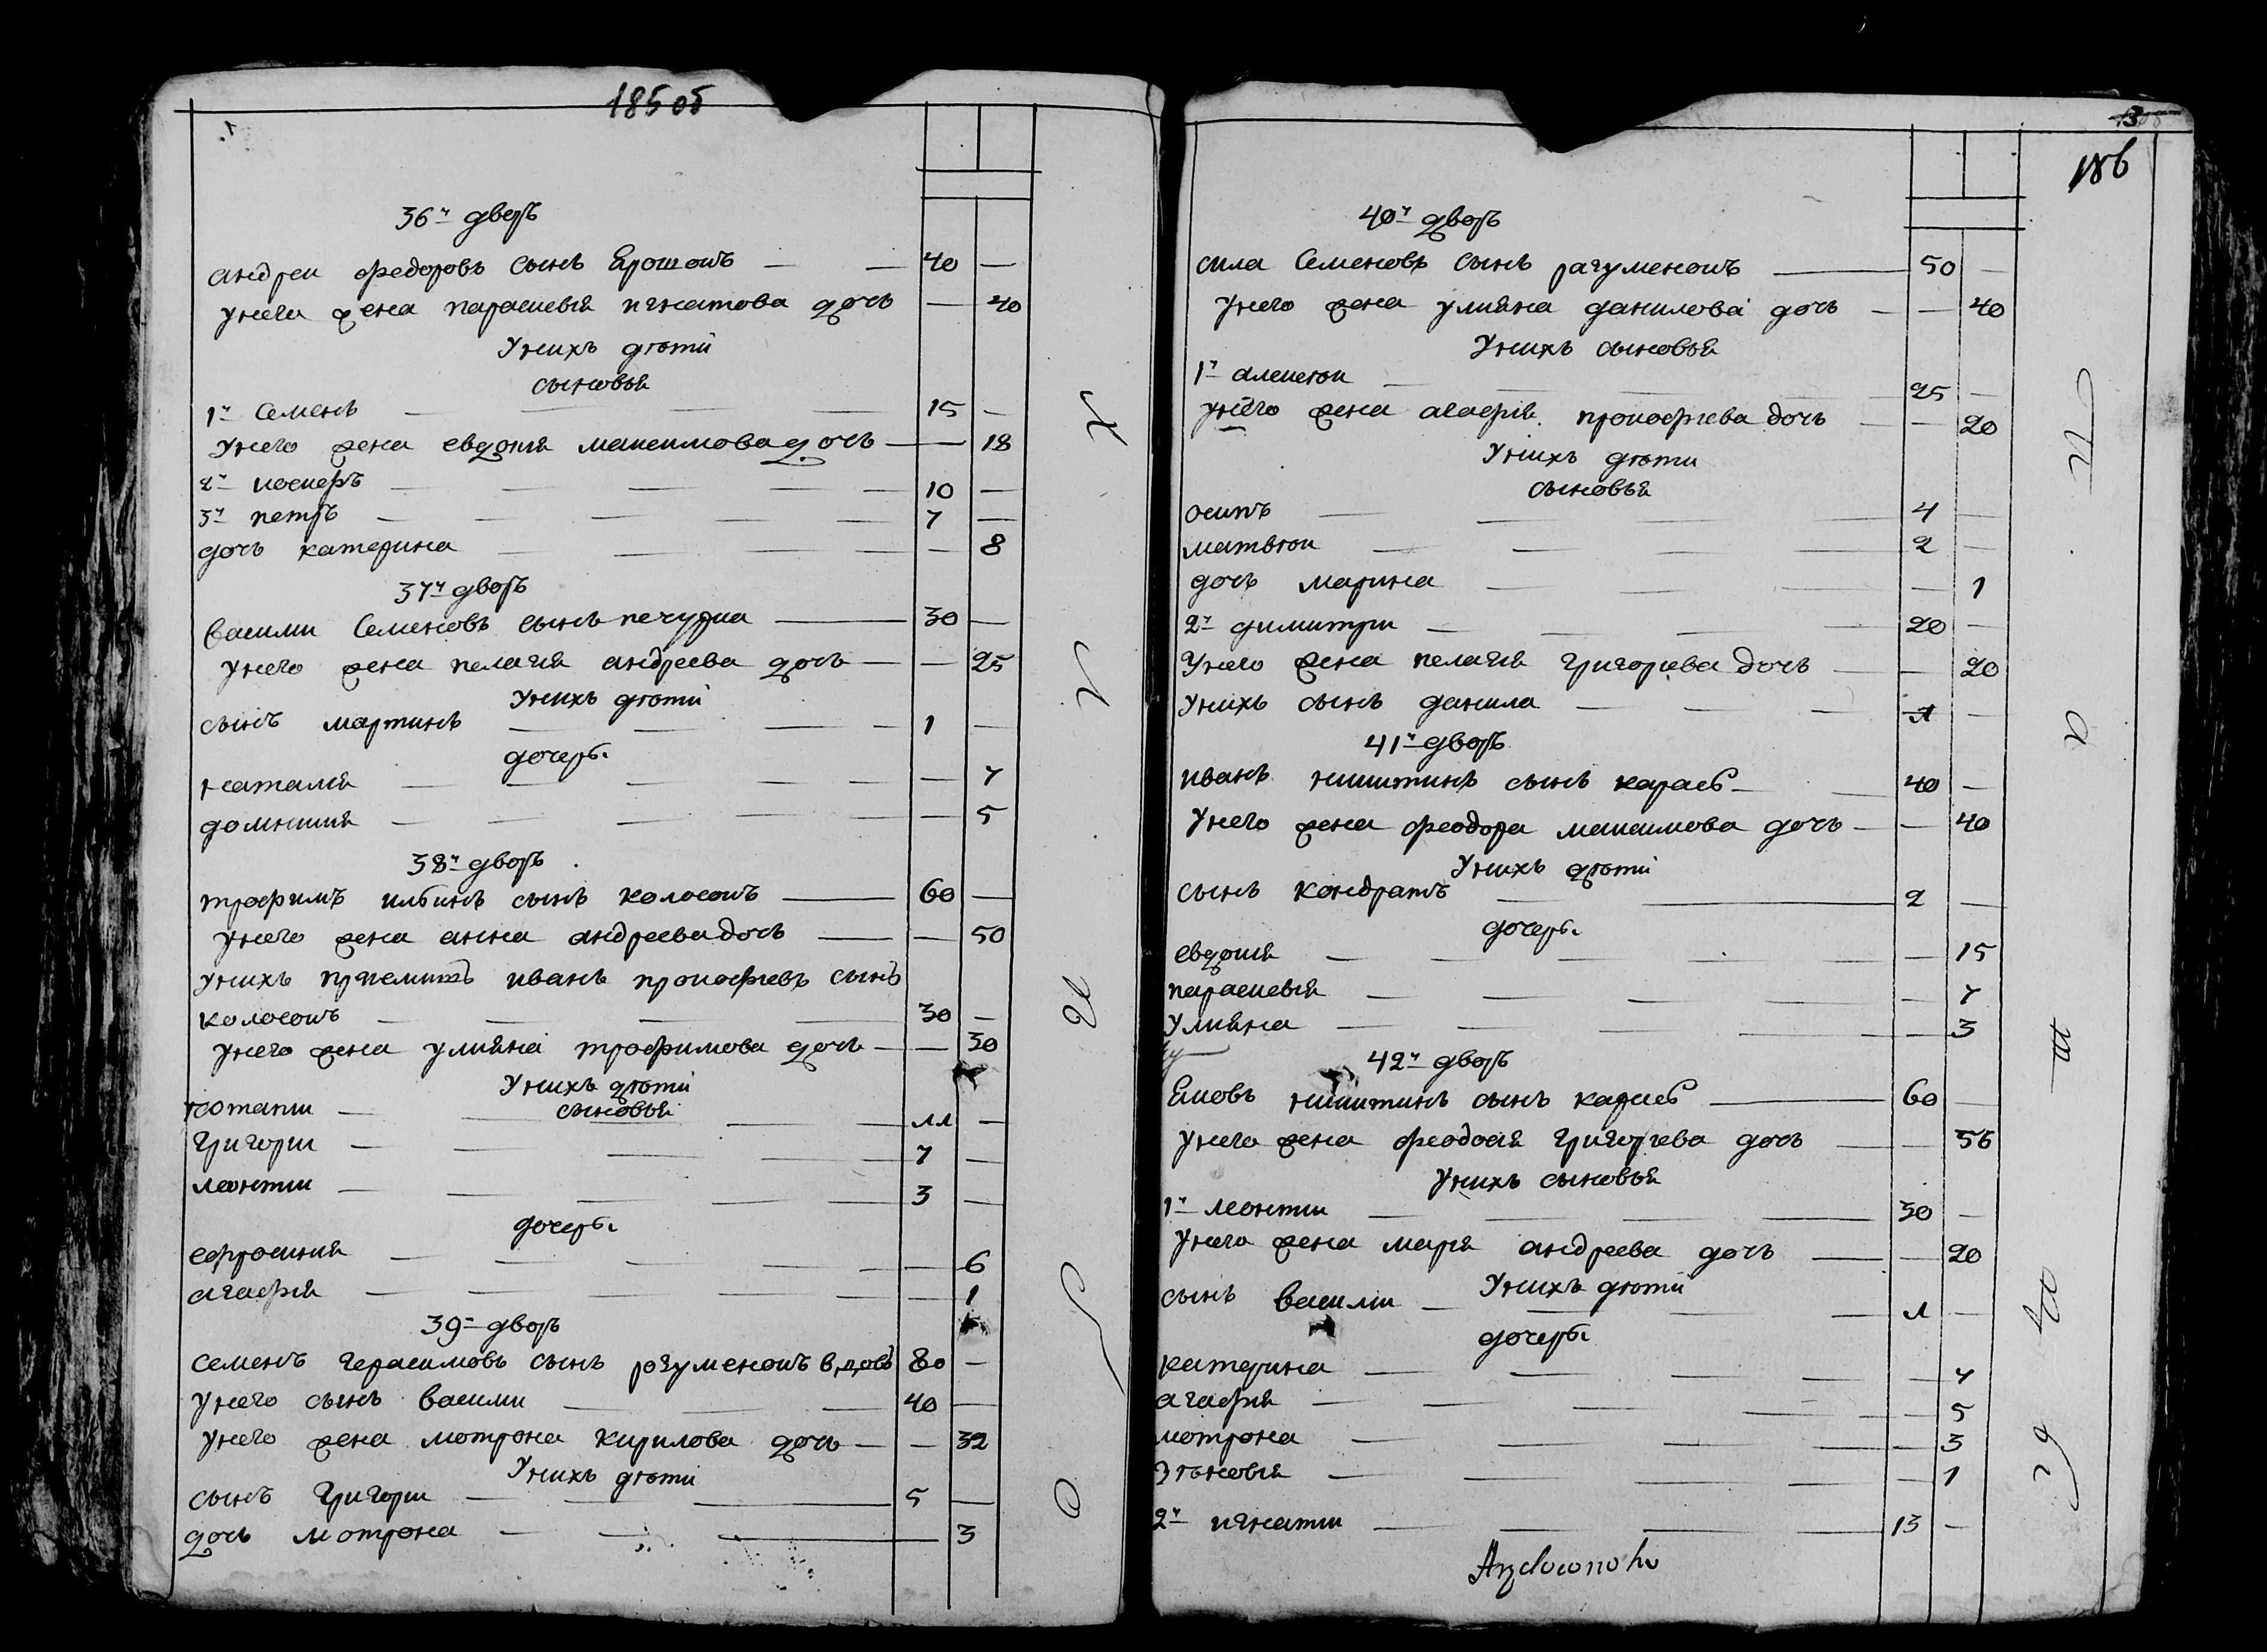 185 об
36й дворъ
андреи федоровъ сынъ Ярошокъ — — 40 —
унего жена параскевия игнатова дочъ — 40
Унихъ дѣти
сыновья
1й Семенъ — 15 —
Унего жена евдокия максимова дочъ — — 18
2й иосифъ — 10 —
3й петръ — 7 —
дочъ катерина — — 8
37й дворъ
василии Семеновъ сынъ печурка — 30 —
Унего жена пелагия андреева дочъ — — 25
Унихъ дѣти
сынъ мартинъ — 1 —
дочеры
наталия — — 7
домникия — — 5
38й дворъ
трофимъ илбинъ сынъ колосокъ — 60 —
унего жена анна андреева дочъ — — 50
унихъ приемишъ иванъ прокофиевъ сынъ
колосокъ — 30 —
унего жена улияна трофимова дочъ — — 30
Унихъ дѣти
сыновья
потапии — 11 —
Григории — 7 —
леонтии — 3 —
дочеры
ефросиния — — 6
агафия — — 1
39й дворъ
семенъ герасимовъ сынъ разуменокъ вдовъ 80 —
Унего сынъ василии — 40 —
Унего жена мотрона кирилова дочъ — — 32
Унихъ дѣти
сынъ Григории — 5 —
дочъ мотрона — 3
186
40й дворъ
сила Семеновъ сынъ разуменокъ — 50 —
Унего жена улияна данилова дочъ — — 40
Унихъ сыновья
1й алексѣи — 25 —
унего жена агафия прокофиева дочъ — — 20
Унихъ дѣти
сыновья
осипъ — 4 —
матвѣи — 2 —
дочъ марина — — 1
2й димитрии — 20 —
Унего жена пелагия Григориева дочъ — — 20
Унихъ сынъ данила — 1 —
41й дворъ
иванъ никитинъ сынъ карасъ — 40 —
Унего жена феодора максимова дочъ — — 40
Унихъ дѣти
сынъ кондратъ — 2 —
дочеры
евдокия — — 15
параскевия — — 7
Улияна — — 3
42й дворъ
Яковъ никитинъ сынъ карасъ — 60 —
унего жена феодосия Григориева дочъ — — 56
Унихъ сыновья
1й леонтии — 30 —
Унего жена мария андреева дочъ — — 20
Унихъ дѣти
сынъ василии — 1 —
дочеры
катерина — — 7
агафия — — 5
мотрона — — 3
зѣновия — — 1
2й игнатии — 13 —